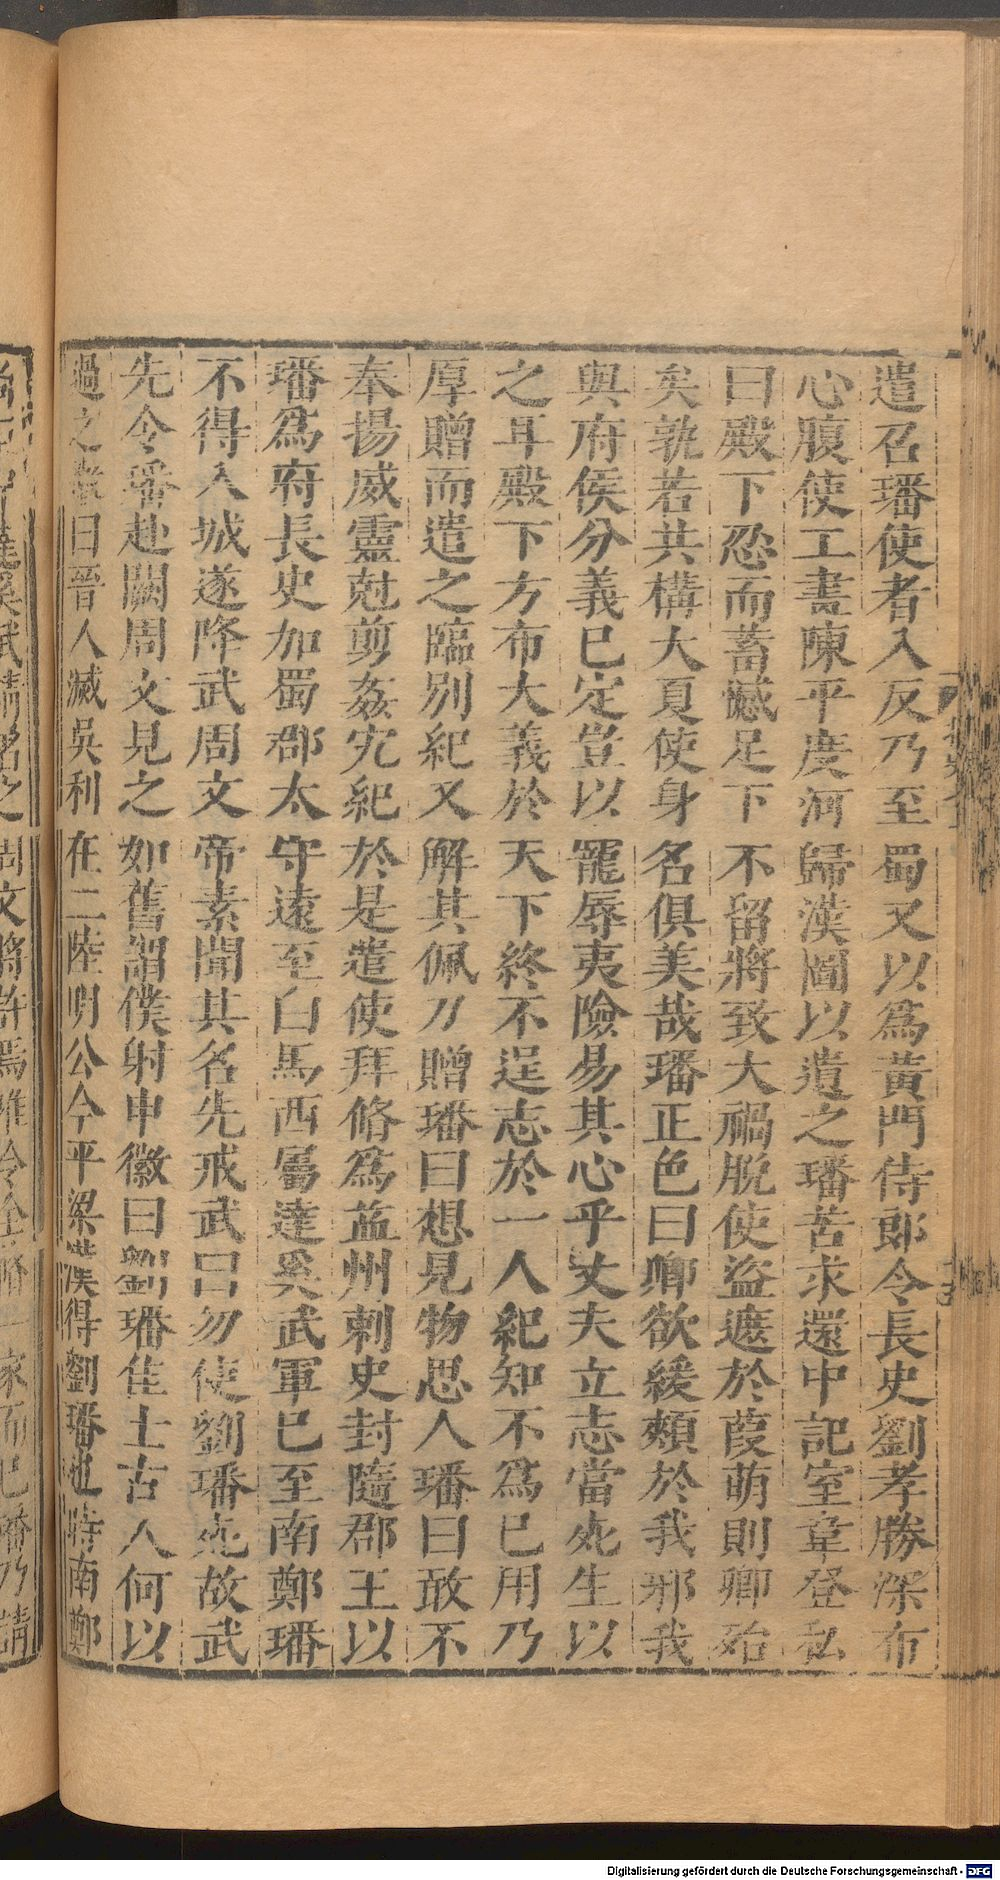 遣召璠使者入反乃至蜀又以爲黃門侍郎令長史劉孝勝深布
心腹使工畫陳平度河歸漢圖以遺之璠苦求還中記室韋登私
曰殿下忍而蓄憾足下不留將致大禍脫使盜遮於葭萌則卿殆
矣孰若共構大夏使身名俱美哉璠正色曰卿欲緩頰於我邪我
與府侯分義已定豈以寵辱夷險易其心乎丈夫立志當死生以
之耳殿下方布大義於天下終不逞志於一人紀知不爲已用乃
厚贈而遣之臨別紀又解其佩刀贈璠曰想見物思人璠曰敢不
奉揚威靈尅剪姦宄紀於是遣使拜脩爲益州剌史封隨郡王以
璠爲府長史加蜀郡太守還至白馬西屬達奚武軍已至南鄭璠
不得入城遂降武周文帝素聞其名先戒武曰勿使劉璠死故武
先令璠赴闕周文見之如舊謂僕射申徽曰劉璠佳士古人何以
過之徽曰晉人滅吳利在二陸明公今平梁漢得劉璠也時南鄭
達奚武請屠之周文將許焉唯令全脩一家而已璠乃請
Digitalisierung gefördert durch die Deutsche Forschungsgemeinschaft - DFG